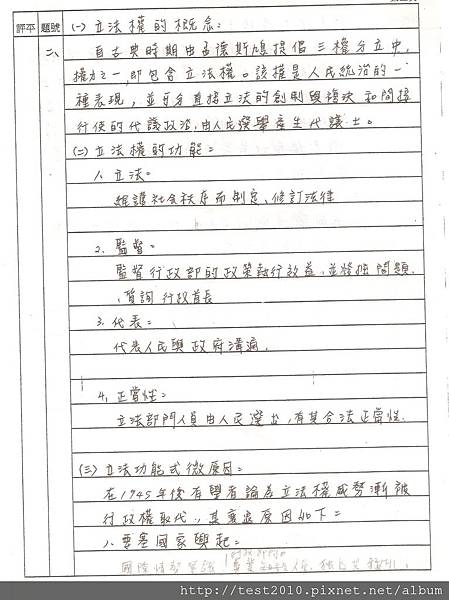 評平 題號
二、
(一) 立法權的概念:
自古典時期由孟德斯鳩提倡三權分立中,
權力之一,即包含立法權。該權是人民統治的一
種表現,並可分直接立法的創制與複決和間接
行使的代議政治,由人民選舉產生代議士。
(二) 立法權的功能:
1. 立法。
維護社會秩序而制定、修訂法律
2. 監督。
監督行政部的政策執行效益,並將其問題,
、質詢行政首長
3. 代表:
代表人民與政府溝通.
4. 正當性:
立法部門人員由人民選出,有其合法正當性.
(三) 立法功能式微原因:
在1945年後有學者論為立法權威勢漸被
行政權取代,其衰退原因如下:
1. 要塞國家興起:
http://test2010.pixnet.net/album